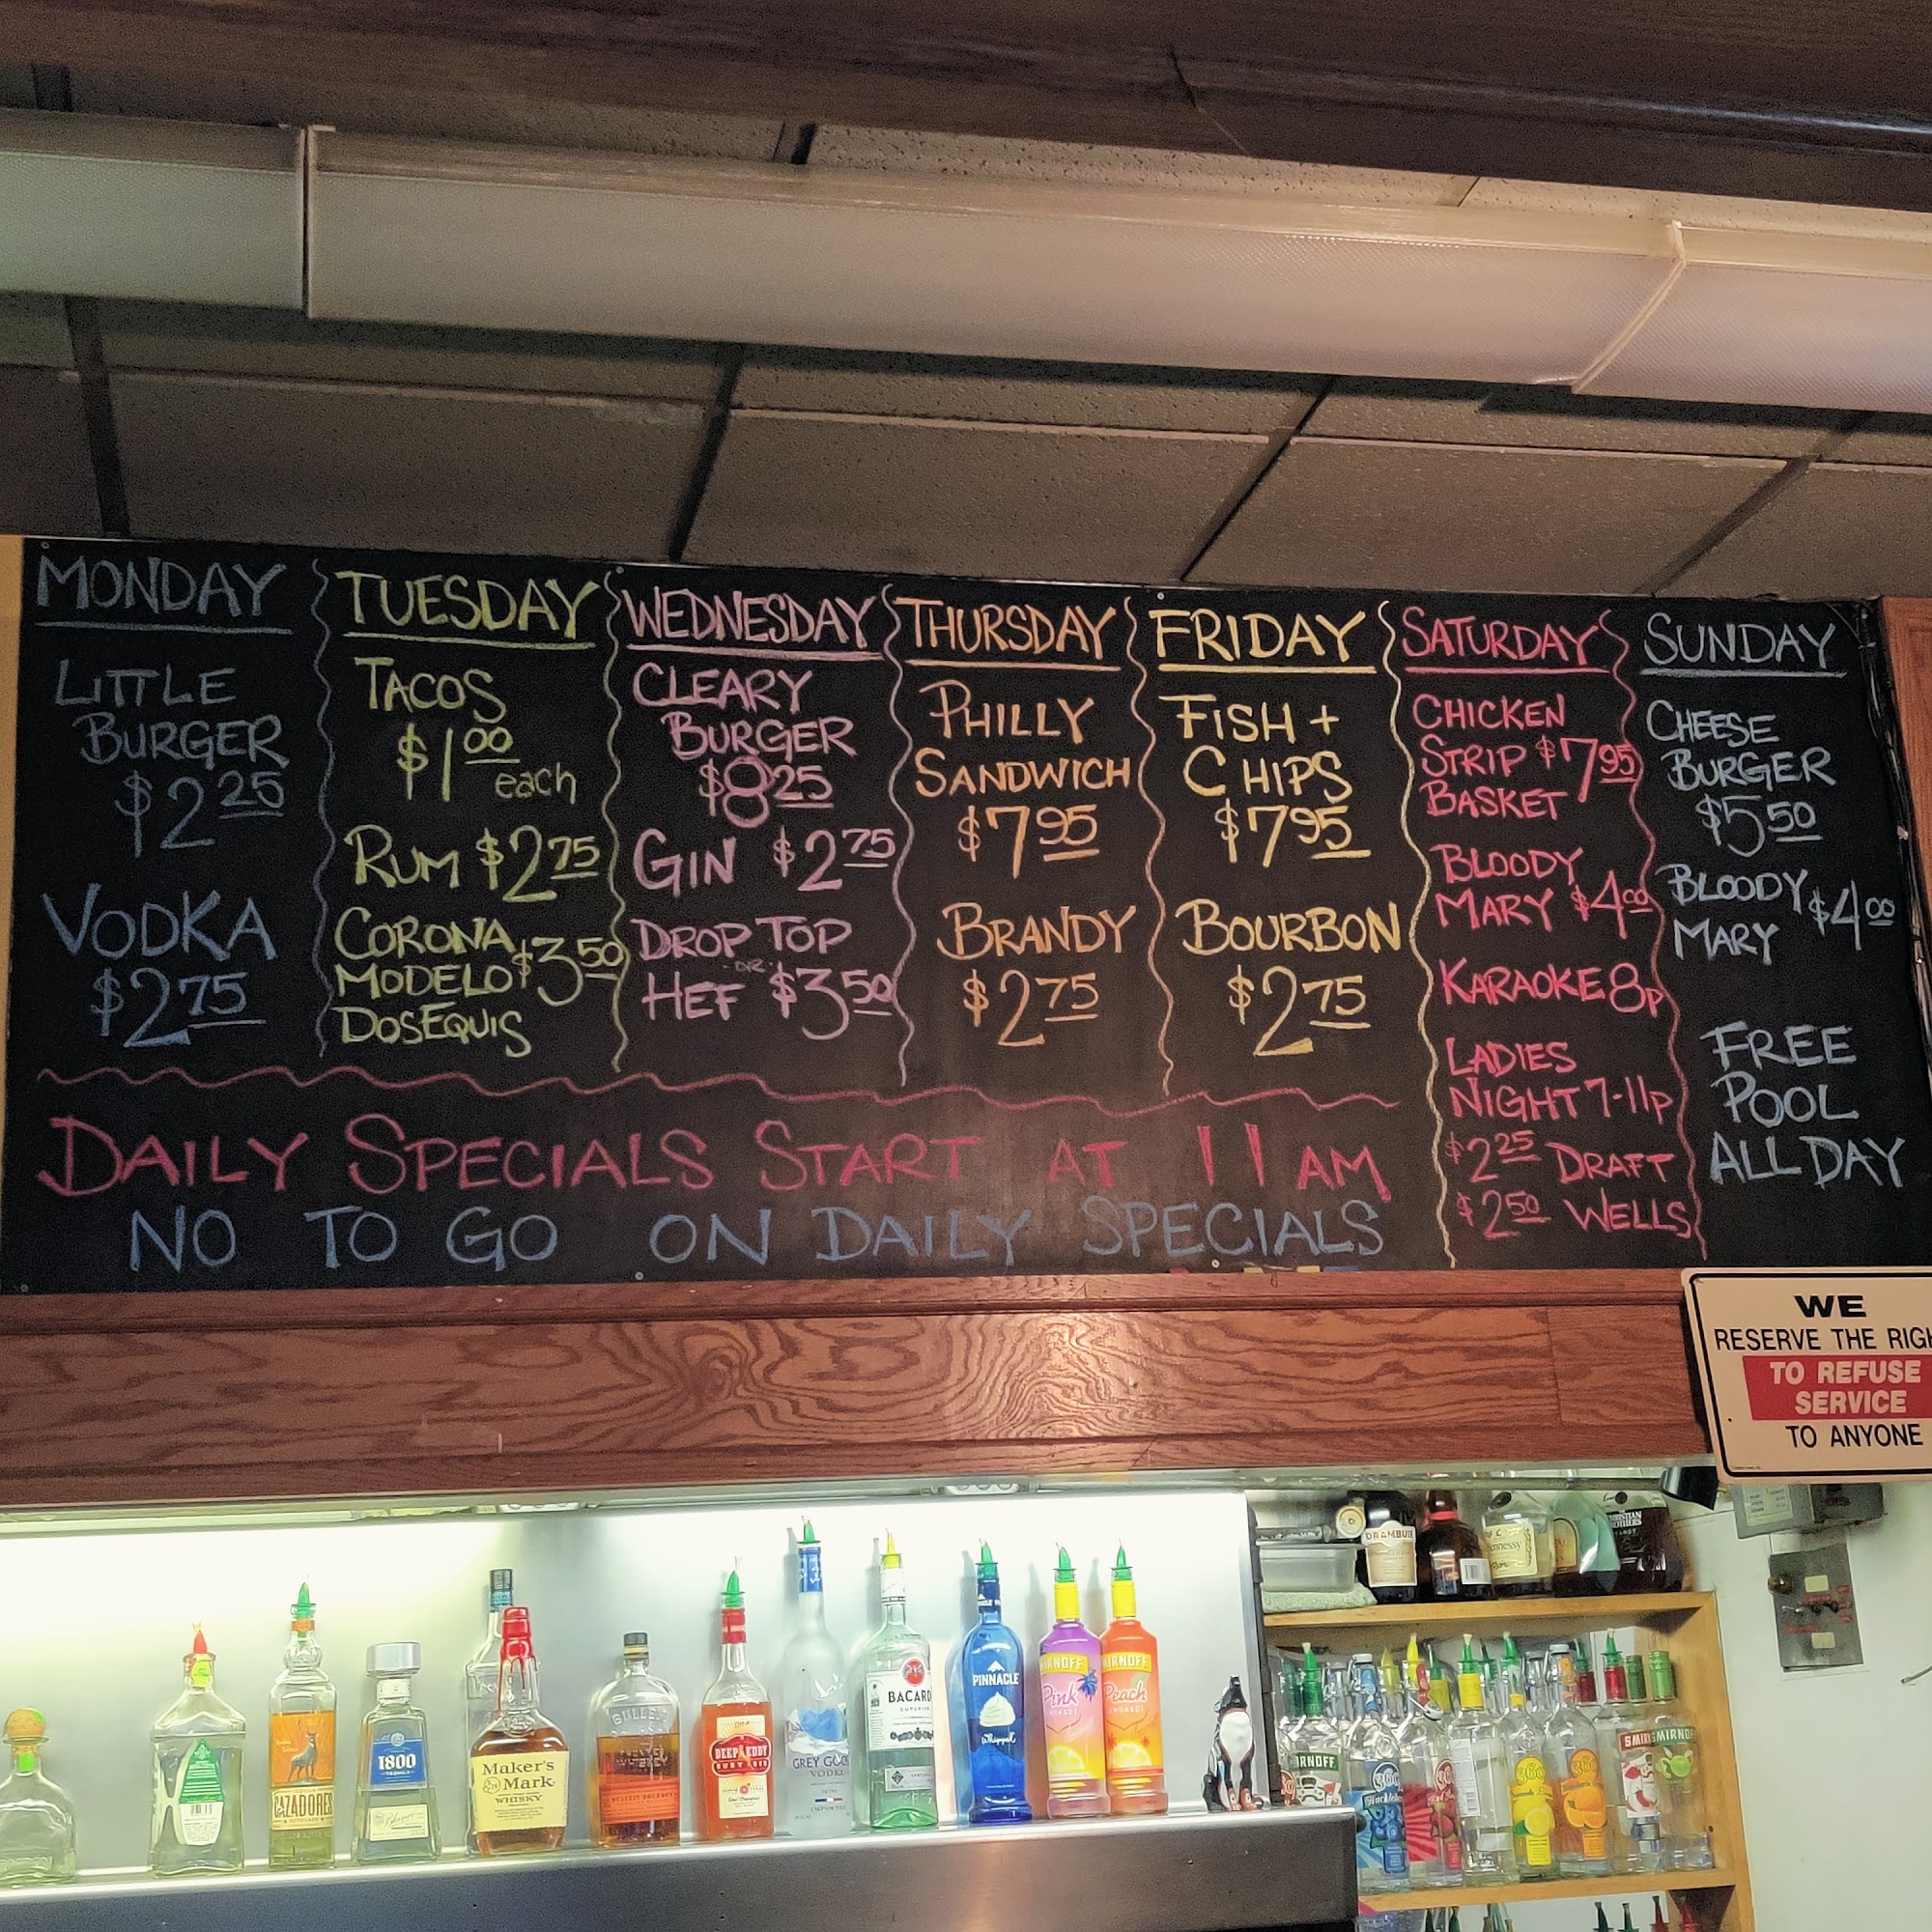 MONDAY
LITTLE
BURGER
$2.25
VODKA
$2.75
TUESDAY
TACOS
$1.00
each
RUM $2.75
CORONA
MODELO $3.50
DOS EQUIS
WEDNESDAY
CLEARY
BURGER
$8.25
GIN $2.75
DROP TOP
-OR-
HEF $3.50
THURSDAY
PHILLY
SANDWICH
$7.95
BRANDY
$2.75
FRIDAY
FISH +
CHIPS
$7.95
BOURBON
$2.75
SATURDAY
CHICKEN
STRIP $7.95
BASKET
BLOODY
MARY $4.00
KARAOKE 8p
LADIES
NIGHT 7-11p
$2.25 DRAFT
$2.50 WELLS
SUNDAY
CHEESE
BURGER
$5.50
BLOODY
MARY $4.00
FREE
POOL
ALL DAY
DAILY SPECIALS START AT 11 AM
NO TO GO ON DAILY SPECIALS
WE
RESERVE THE
TO REFUSE
SERVICE
TO ANYONE
CAZADORES
1800
TEQUILA
Maker's
Mark
WHISKY
BULLEIT
DEEP EDDY
RUBY RED
GREY
VODKA
IMPORTED
BACARDI
SUPERIOR
PINNACLE
Whipped
SMIRNOFF
Pink
LEMONADE
SMIRNOFF
Peach
LEMONADE
DRAMBUIE
Hennessy
CHRISTIAN
BROTHERS
360
360
360
SMIRNOFF